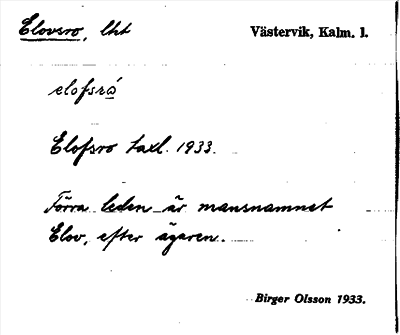 Elovsro, lht Västervik, Kalm. l.
elofsró
Elofsro taxl. 1933.
Förra leden är mansnamnet
Elov, efter ägaren.
Birger Olsson 1933.